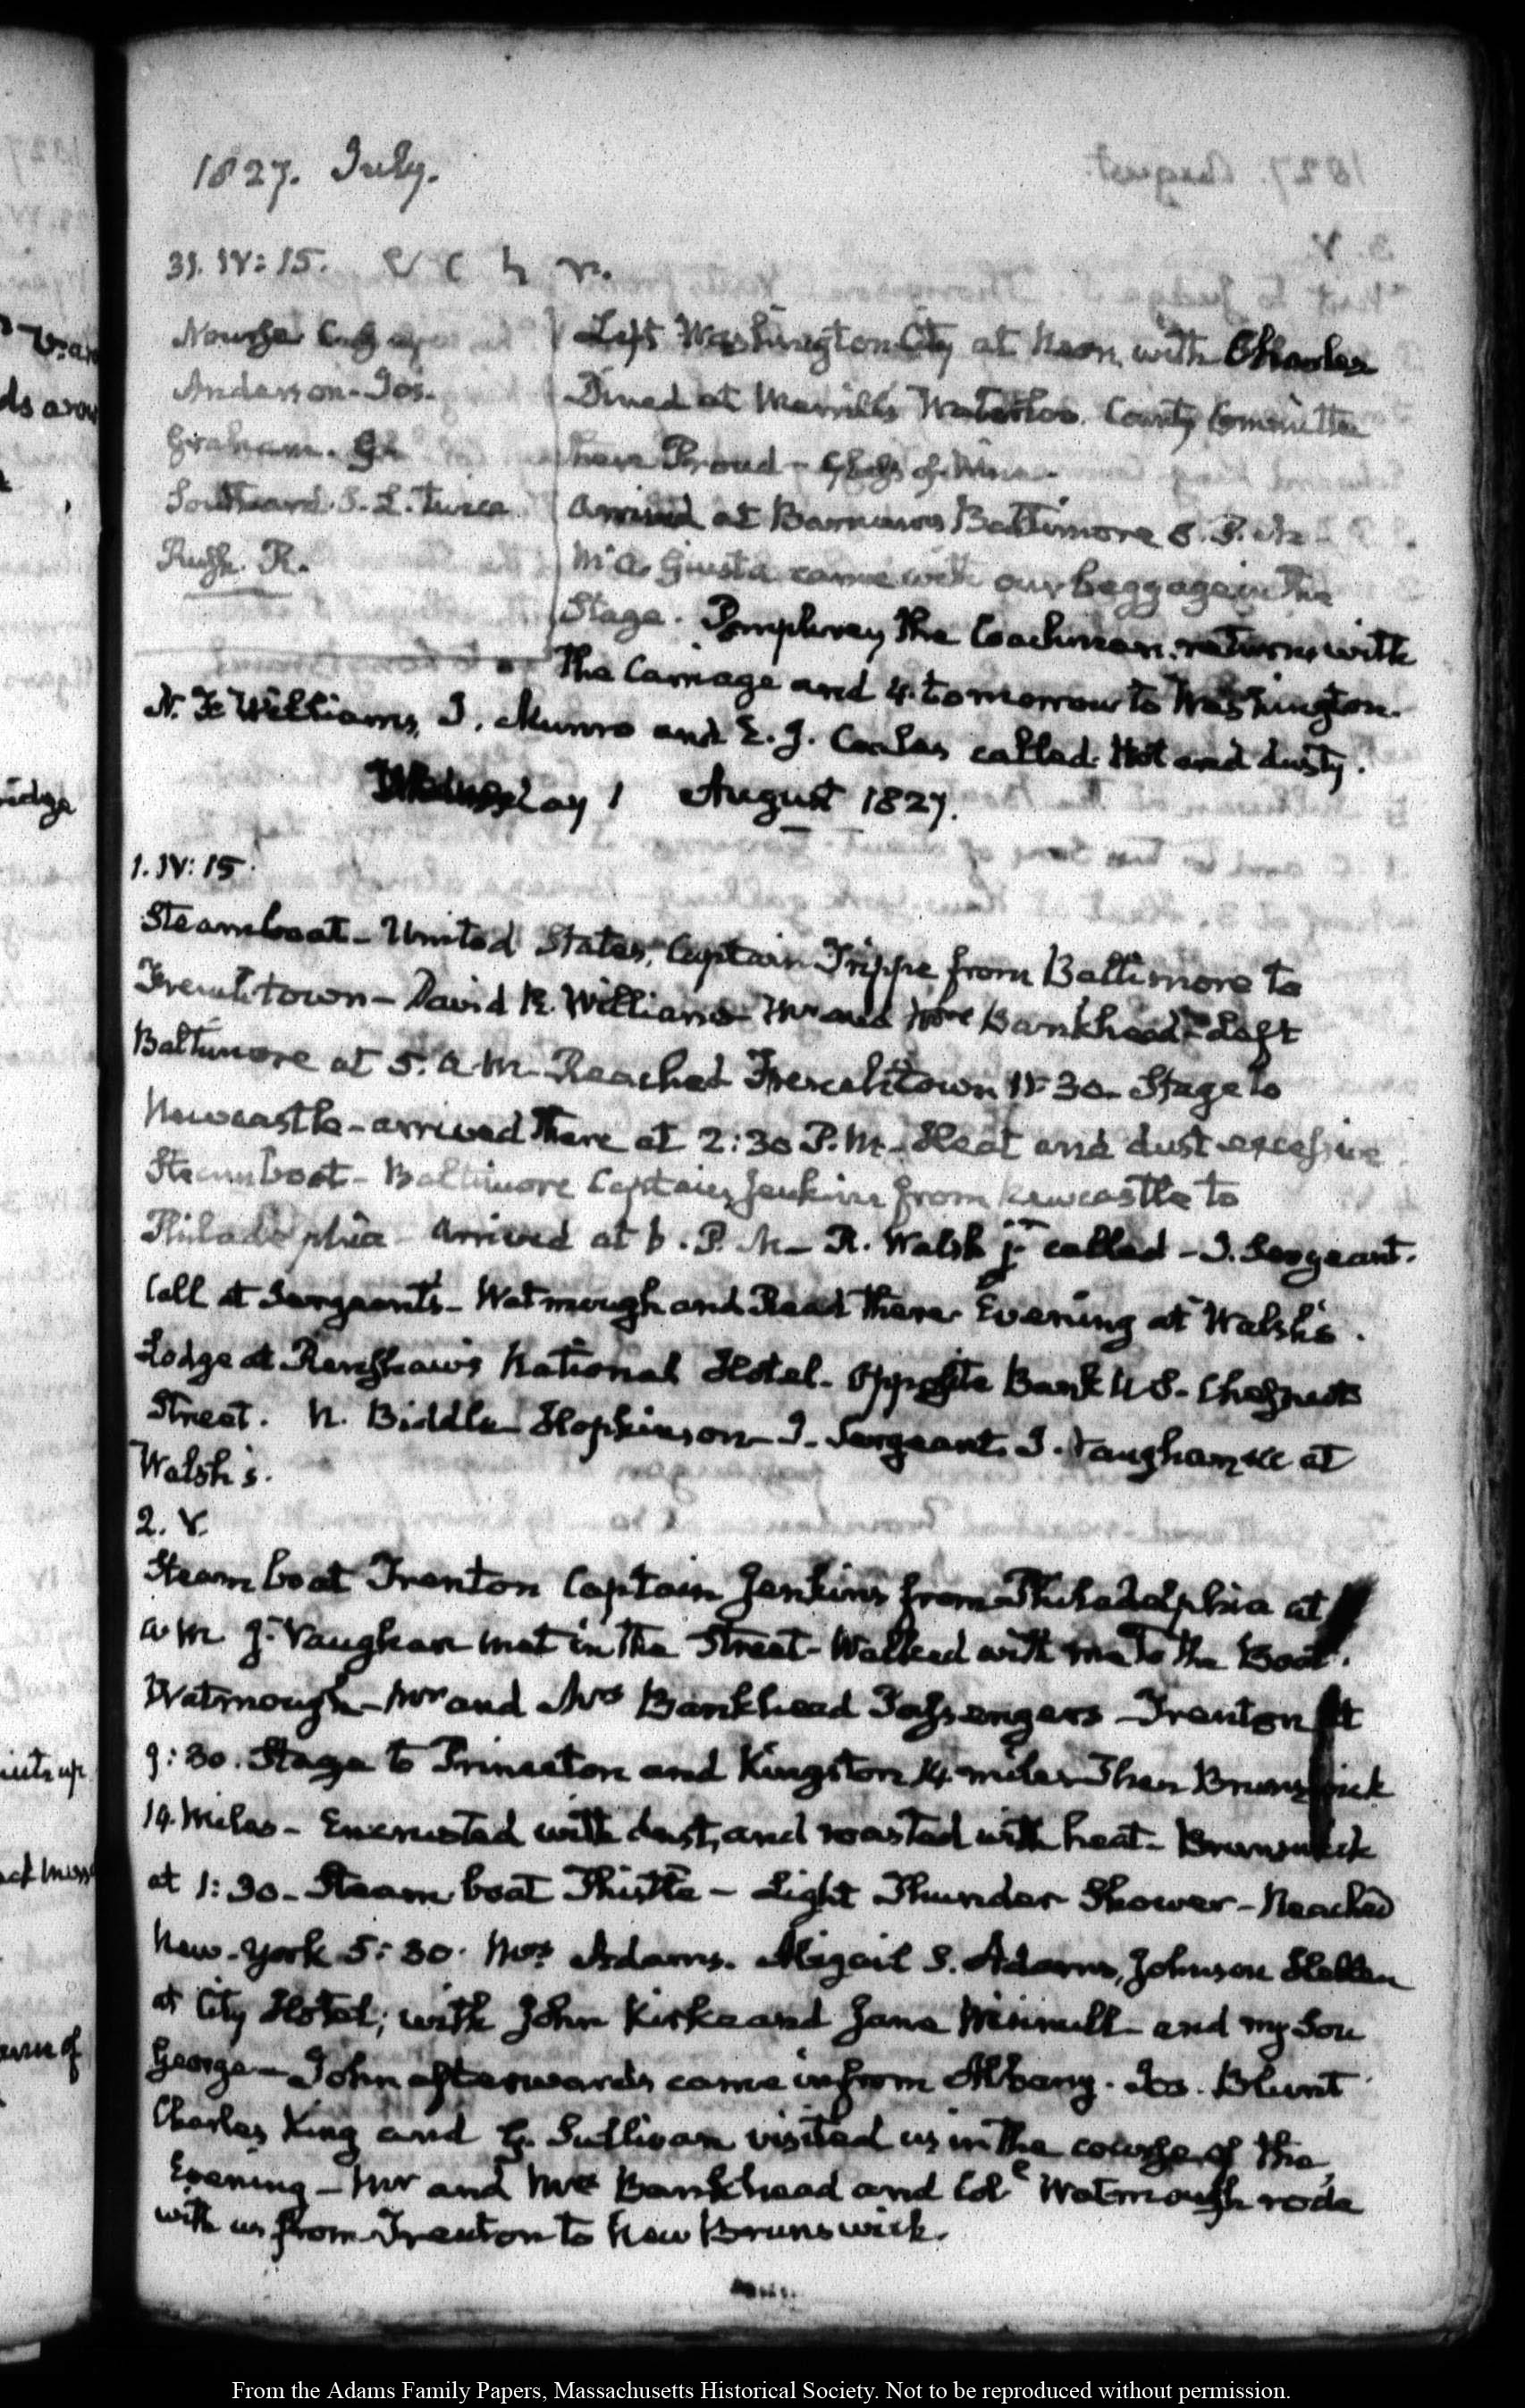 1827. July.
31. IV: 15.
Nourse C.
Anderson. Jos.
Graham. G.
Southard. S. L. twice
Rush. R.
Left Washington City at Noon, with Charles
Dined at Merrill's Waterloo. County Committee
here Proud - Glass of Wine.
Arrived at Barnum's Baltimore 8. P. M
M. A. Giusta came with our baggage in the
Stage. Pomphrey the Coachman returns with
the Carriage and 4. tomorrow to Washington.
N. F. Williams, I. Munro and E. J. Coale called. Hot and dusty.
Wednesday 1 August 1827.
1. IV: 15.
Steamboat - United States, Captain Trippe from Baltimore to
Frenchtown - David R. Williams - Mr and Mrs Bankhead - Left
Baltimore at 5. A.M. Reached Frenchtown 11:30 - Stage to
Newcastle - arrived there at 2:30 P.M. - Heat and dust excessive
Steamboat - Baltimore Captain Jenkins from Newcastle to
Philadelphia - Arrived at 6. P. M - R. Walsh jr. called - J. Sergeant.
Call at Sergeant's - Watmough and Read there. Evening at Walsh's.
Lodge at Renshaw's National Hotel - Opposite Bank U S - Chesnut
Street. N. Biddle - Hopkinson - J. Sergeant. J. Vaughan &c at
Walsh's.
2. V.
Steam boat Trenton Captain Jenkins from Philadelphia at
A.M. J. Vaughan met in the Street - Walked with me to the Boat.
Watmough - Mr and Mrs Bankhead Passengers - Trenton at
9:30. Stage to Princeton and Kingston 14 miles Then Brunswick
14. Miles - Encrusted with dust, and roasted with heat - Brunswick
at 1:30 - Steam boat Thistle - Light Thunder Shower - Reached
New-York 5:30. Mrs Adams. Abigail S. Adams, Johnson Hellen
at City Hotel; with John Kirke and Jane Winnull - and my Son
George - John afterwards came in from Albany. Jos. Blunt
Charles King and G. Sullivan visited us in the course of the
Evening - Mr and Mrs Bankhead and Col Watmough rode
with us from Trenton to New Brunswick.
From the Adams Family Papers, Massachusetts Historical Society. Not to be reproduced without permission.